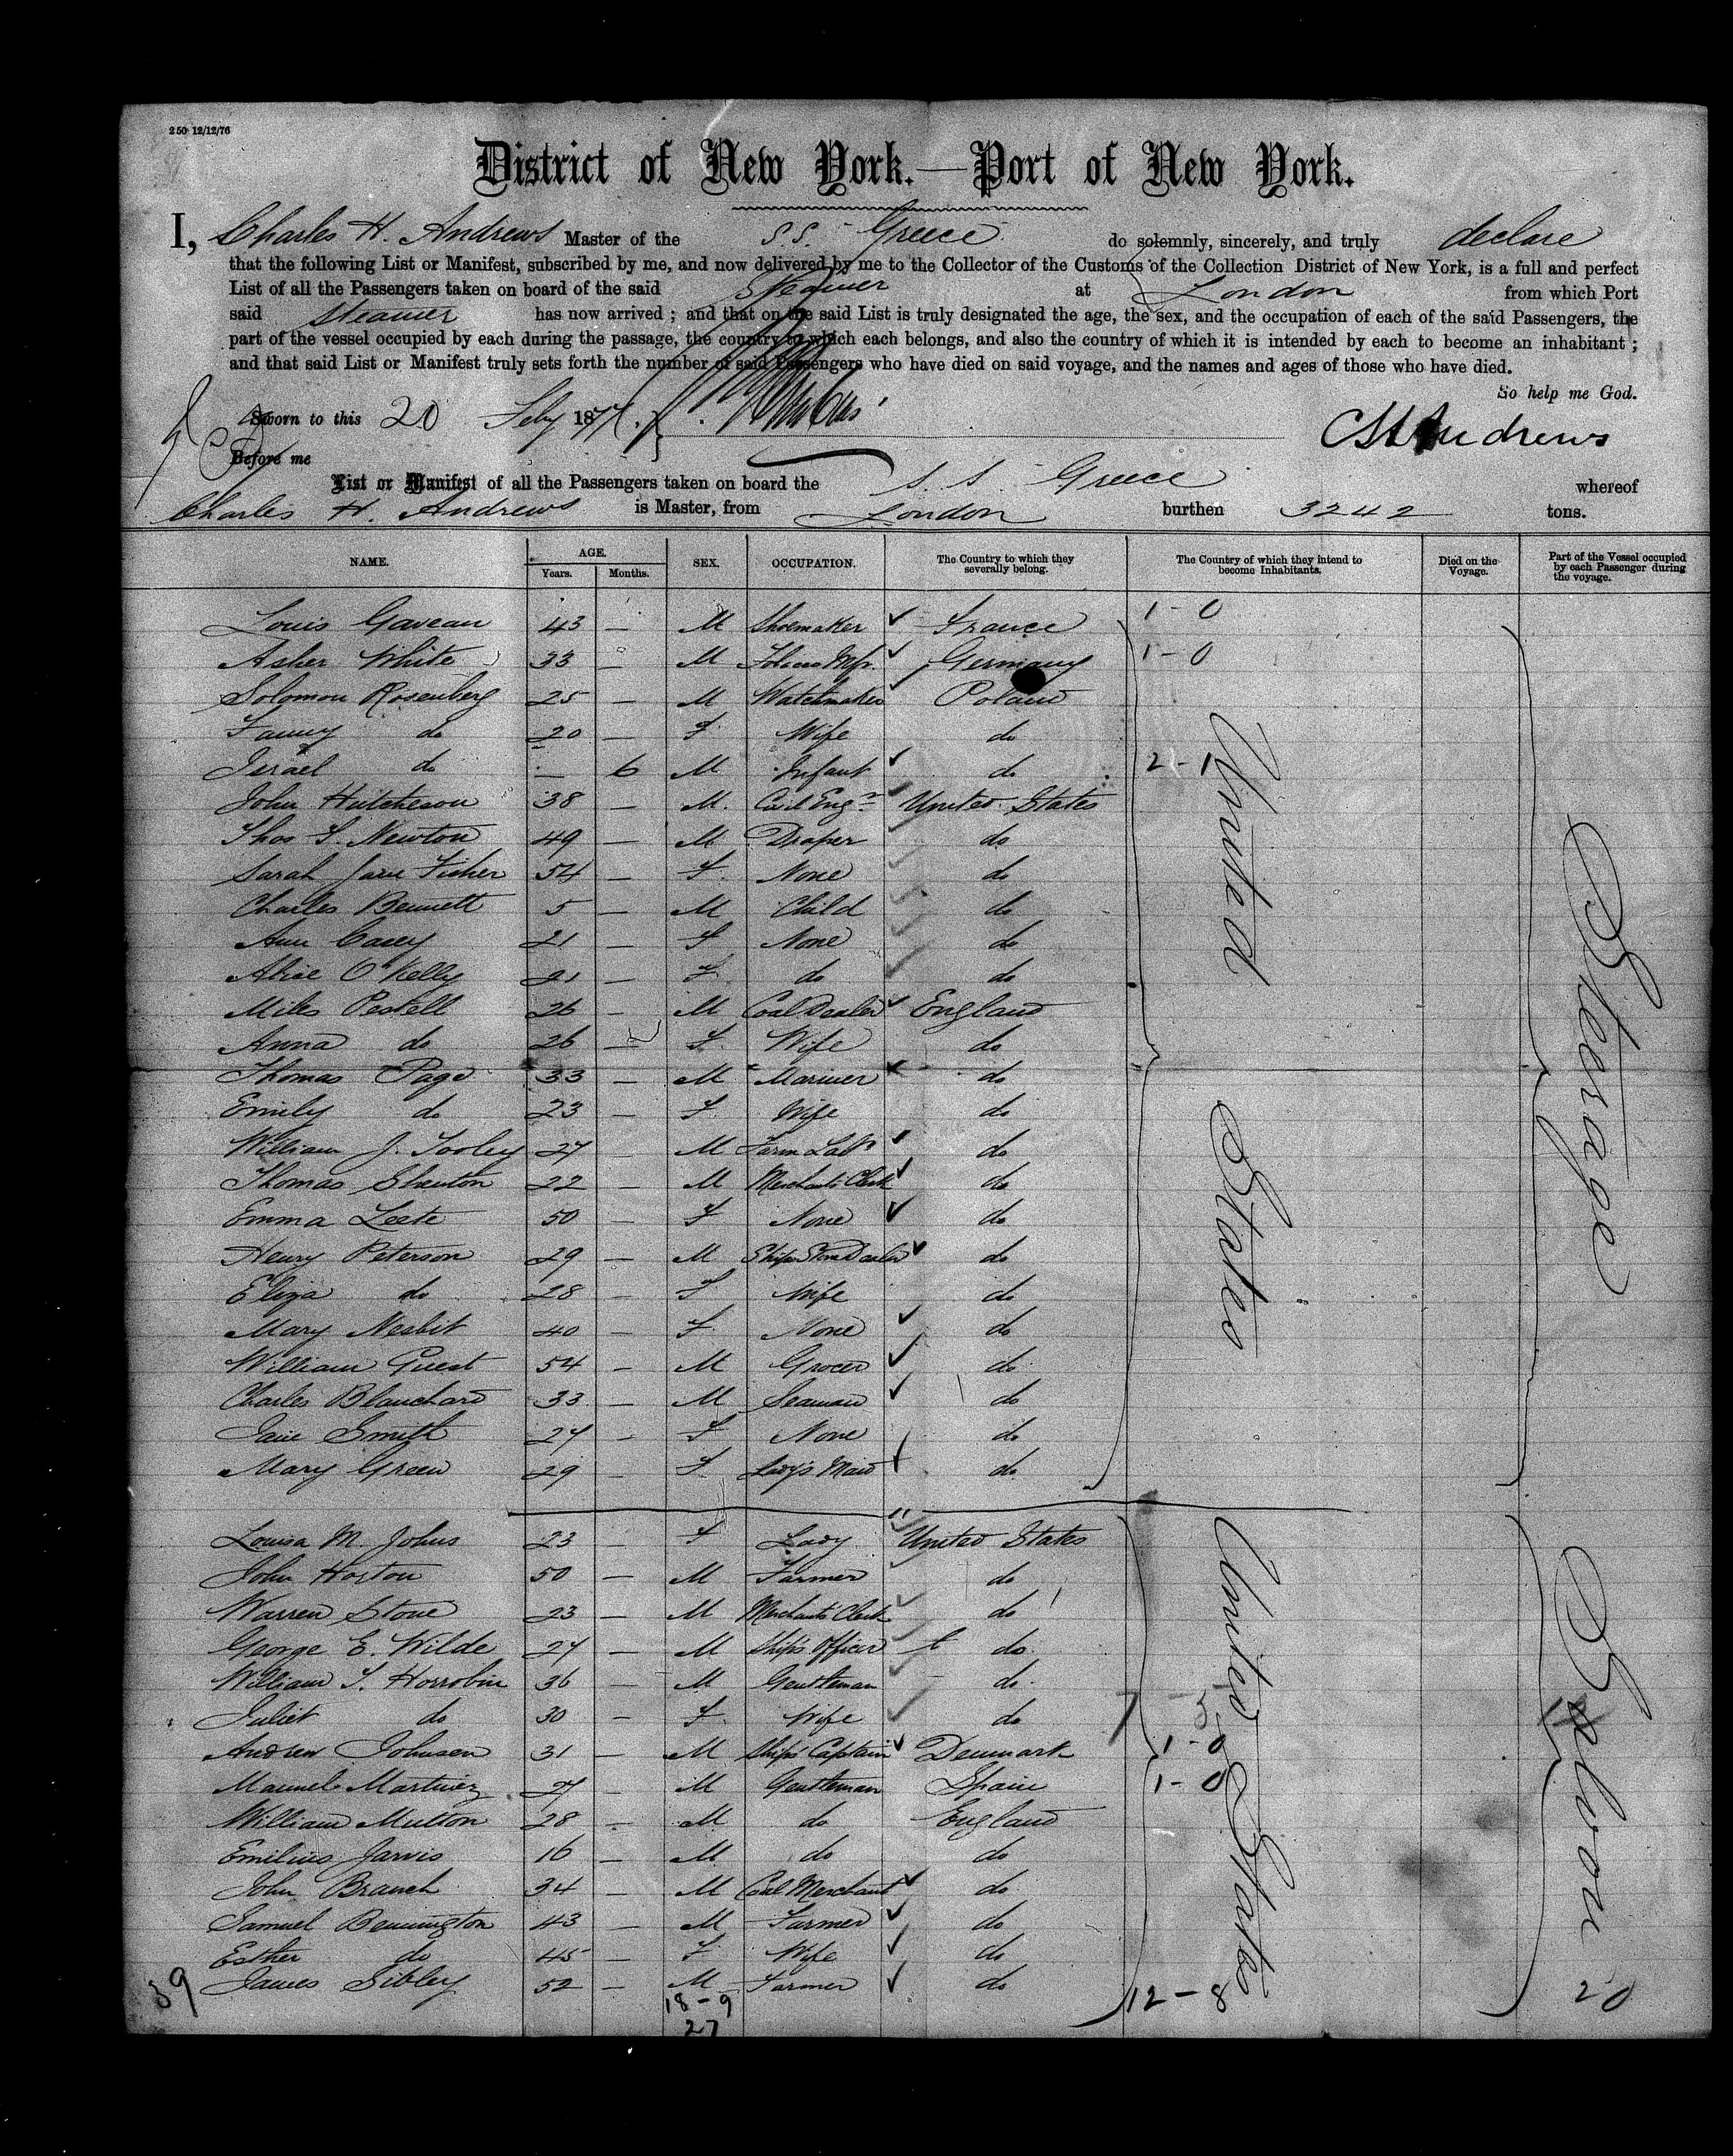 250 12/12/76
District of New York.—Port of New York.
I, Charles H. Andrews Master of the S.S. Greece do solemnly, sincerely, and truly declare
that the following List or Manifest, subscribed by me, and now delivered by me to the Collector of the Customs of the Collection District of New York, is a full and perfect
List of all the Passengers taken on board of the said Steamer at London from which Port
said Steamer has now arrived ; and that on the said List is truly designated the age, the sex, and the occupation of each of the said Passengers, the
part of the vessel occupied by each during the passage, the country to which each belongs, and also the country of which it is intended by each to become an inhabitant ;
and that said List or Manifest truly sets forth the number of said Passengers who have died on said voyage, and the names and ages of those who have died.
So help me God.
Sworn to this 20 Feby 1877.
CH Andrews
Before me
List or Manifest of all the Passengers taken on board the S. S. Greece whereof
Charles H. Andrews is Master, from London burthen 3242 tons.
NAME. AGE. Years. Months. SEX. OCCUPATION. The Country to which they severally belong. The Country of which they intend to become Inhabitants. Died on the Voyage. Part of the Vessel occupied by each Passenger during the voyage.
Louis Gaveau 43 — M Shoemaker France 1-0
Asher White 33 — M Tobacco Mfr. Germany 1-0
Solomon Rosenberg 25 — M Watchmaker Poland
Fanny do 20 — F Wife do
Israel do — 6 M Infant do 2-1
John Hutcheson 38 — M. Civil Engr United States
Thos S. Newton 49 — M Draper do
Sarah Jane Fisher 54 — F. None do
Charles Bennett 5 — M Child do
Ann Casey 21 — F None do
Alice O'Kelly 21 — F do do
Miles Pestell 26 — M Coal Dealer England
Anna do 26 — F Wife do
Thomas Page 33 — M Mariner do
Emily do 23 — F Wife do
William J. Tooley 27 — M Farm Labr do
Thomas Stanton 22 — M Merchants Clerk do
Emma Leete 50 — F None do
Henry Peterson 29 — M Ships Store Dealer do
Eliza do 28 — F Wife do
Mary Nesbit 40 — F. None do
William Guest 54 — M Grocer do
Charles Blanchard 33 — M Seaman do
Jane Smith 27 — F None do
Mary Green 29 — F Lady's Maid do
United States
Steerage
Louisa M. Johns 23 — F Lady United States
John Horton 50 — M Farmer do
Warren Stone 23 — M Merchants Clerk do
George E. Wilde 27 — M Ship's Officer do
William T. Horrobin 36 — M Gentleman do
Juliet do 30 — F. Wife do
Andrew Johnsen 31 — M Ship's Captain Denmark 1-0
Manuel Martinez 27 — M Gentleman Spain 1-0
William Mutton 28 — M do England
Emilius Jarvis 16 — M do do
John Branch 34 — M Coal Merchant do
Samuel Bennington 43 — M Farmer do
Esther do 45 — F Wife do
James Sibley 52 — M Farmer do 12-8 20
United States
Saloon
39
18-9
27